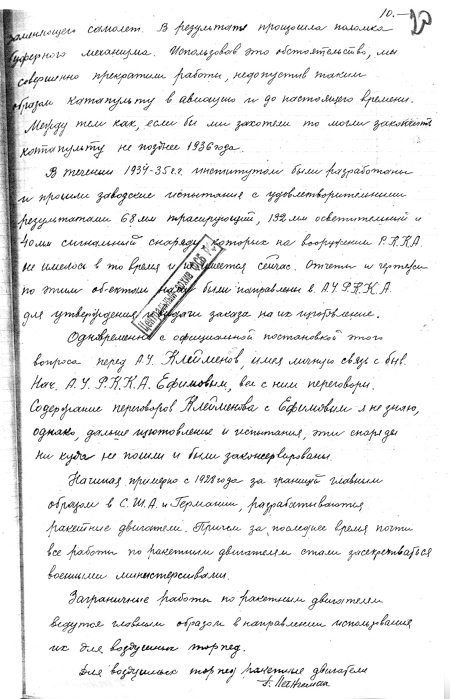 10.
заменяющего самолет. В результате произошла поломка
буферного механизма. Использовав это обстоятельство, мы
совершенно прекратили работы, недопустив таким
образом катапульту в авиацию и до настоящего времени.
Между тем как, если бы мы захотели то могли закончить
катапульту не позднее 1936 года.
В течении 1934-35 г.г. институтом были разработаны
и прошли заводские испытания с удовлетворительными
результатами 68 мм трасирующий, 132 мм осветительный и
40 мм сигнальный снаряды которых на вооружении Р.К.К.А.
не имелось в то время и не имеется сейчас. Отчеты и чертежи
по этим объектам были направлены в А.У.Р.К.К.А.
для утверждения и выдачи заказа на их изготовление.
Центральный архив ФСБ
Одновременно с официальной постановкой этого
вопроса перед А.У. Клейменов, имея личную связь с быв.
Нач. А.У.Р.К.К.А. Ефимовым, вел с ним переговоры.
Содержание переговоров Клейменова с Ефимовым я не знаю,
однако, дальше изготовление и испытания, эти снаряды
ни куда не пошли и были законсервированы.
Начиная примерно с 1928 года за границей главным
образом в С.Ш.А. и Германии, разрабатываются
ракетные двигатели. Причем за последнее время почти
все работы по ракетным двигателям стали засекречиваться
военными министерствами.
Заграничные работы по ракетным двигателям
ведутся главным образом в направлении использования
их для воздушных торпед.
Для воздушных торпед ракетные двигатели
Г. Лангемак